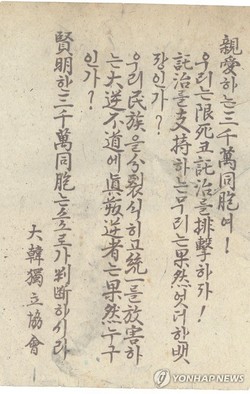 親愛하는三千萬同胞여!
우리는限死코託治를排擊하자!
託治를支持하는무리는果然엇더한뱃
장인가?
우리民族을分裂식히고統一를放害하
는大逆不道에眞叛逆者는果然누구
인가?
賢明한三千萬同胞는스스로가判斷하시라
大韓獨立協會
YONHAPNEWS